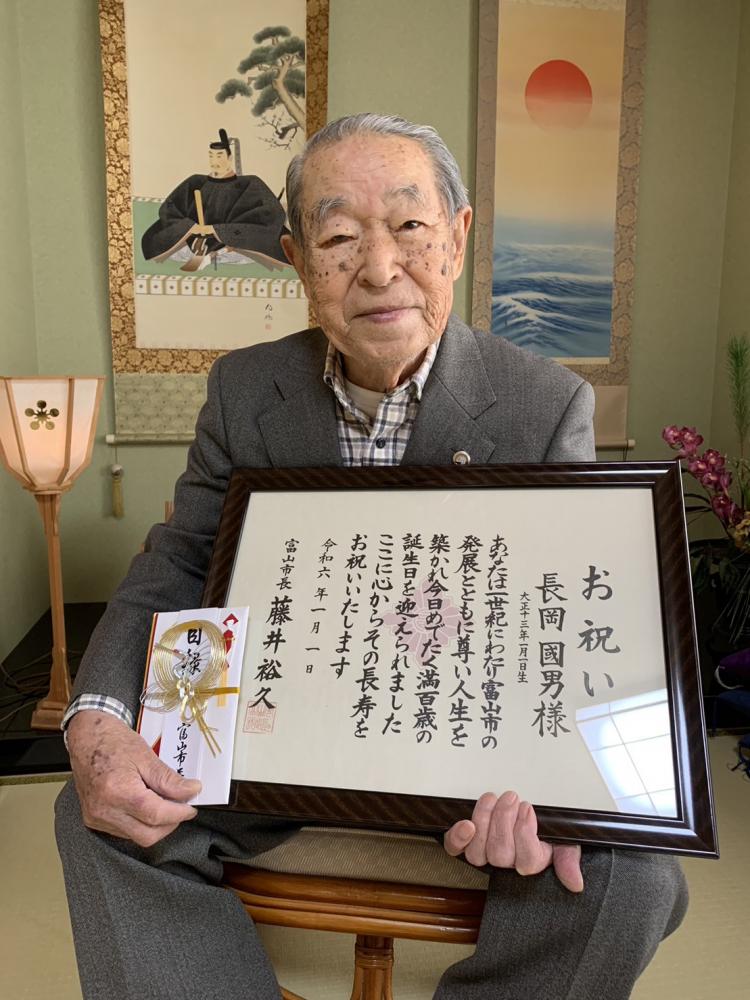 お祝い
長岡國男様
大正十三年一月一日生
あなたは一世紀にわたり富山市の
発展とともに尊い人生を
築かれ今日めでたく満百歳の
誕生日を迎えられました
ここに心からその長寿を
お祝いいたします
令和六年一月一日
富山市長 藤井裕久
目録
富山市長